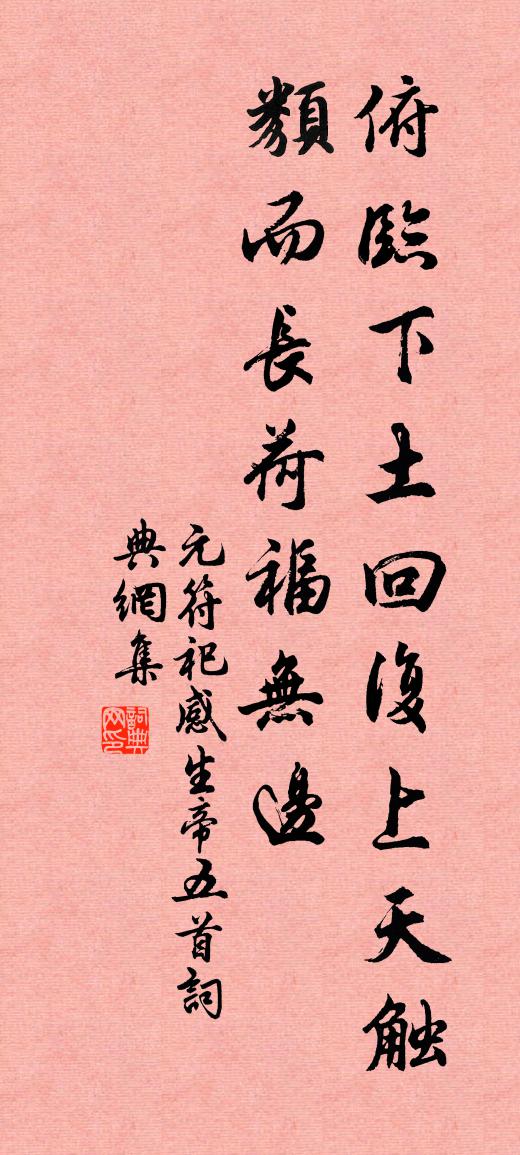 俯臨下土回復上天触
類而長荷福無邊
元符祀感生帝五首詞
典網集
詞典網印